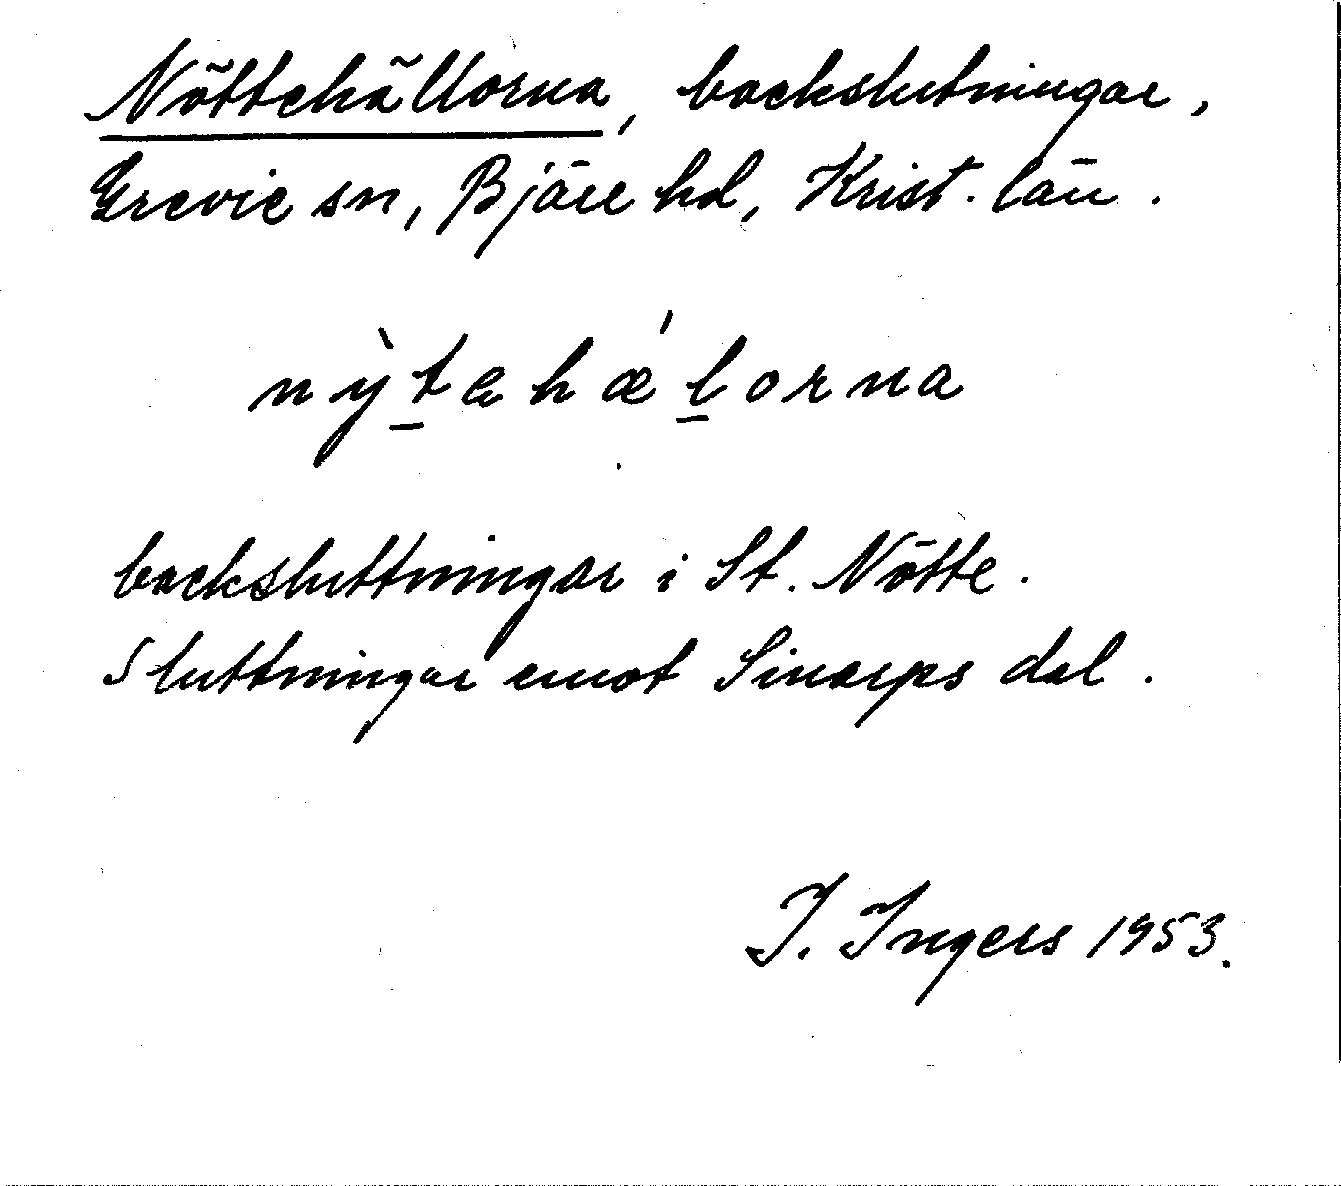 Nöttehällorna, backslutningar,
Grevie sn, Bjäre hd, Krist. län.
nỳt̲ehǽl̲orna
backsluttningar i St. Nötte.
Sluttningar emot Sinarps dal.
I. Ingers 1953.